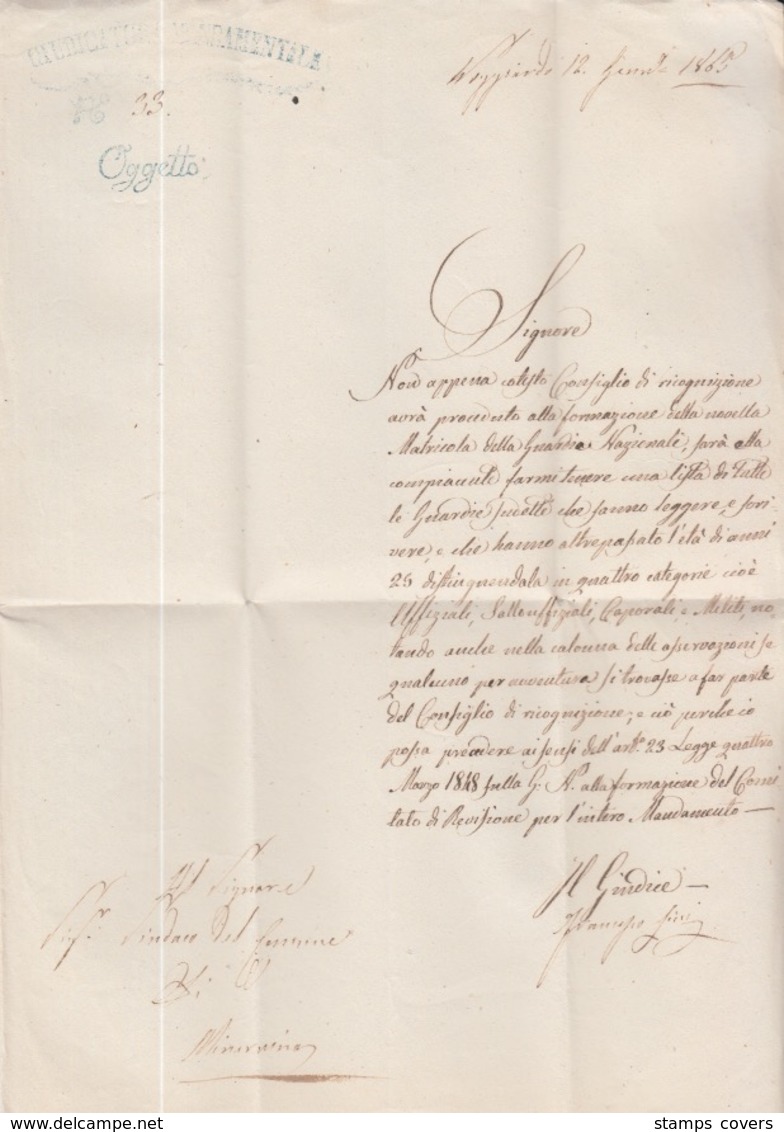 GIUDICATURA MANDAMENTALE
33.
12. 1863
Oggetto
Signore
Non appena cotesto Consiglio di ricognizione
avrà proceduto alla formazione della novella
Matricola della Guardia Nazionale, sarà ella
compiacente farmi tenere una lista di tutte
le Guardie sudette che sanno leggere, e scri
vere, e che hanno oltrepassato l'età di anni
25 distinguendola in quattro categorie cioè
Uffiziali, Sottouffiziali, Caporali, e Militi, no,
tando anche nella colonna delle osservazioni se
qualcuno per avventura si trovasse a far parte
del Consiglio di ricognizione; e ciò perche io
possa procedere ai sensi dell'arto. 23 Legge quattro
Marzo 1848 sulla G. N. alla formazione del Comi
tato di Revisione per l'intero Mandamento —
Il Giudice —
Francesco
Al Signore
Sigr. Sindaco del Comune
di
Minervino
stamps covers